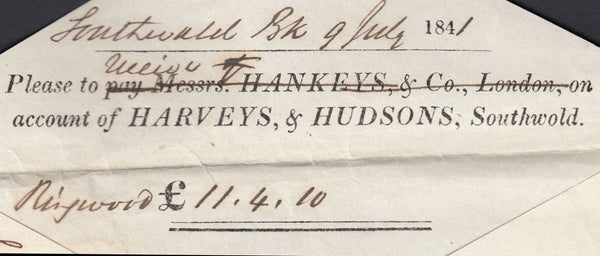 Southwold Bk 9 July 1841
Please to pay Messrs. HANKEYS, & Co., London, on
account of HARVEYS, & HUDSONS, Southwold.
Ringwood £ 11.4.10